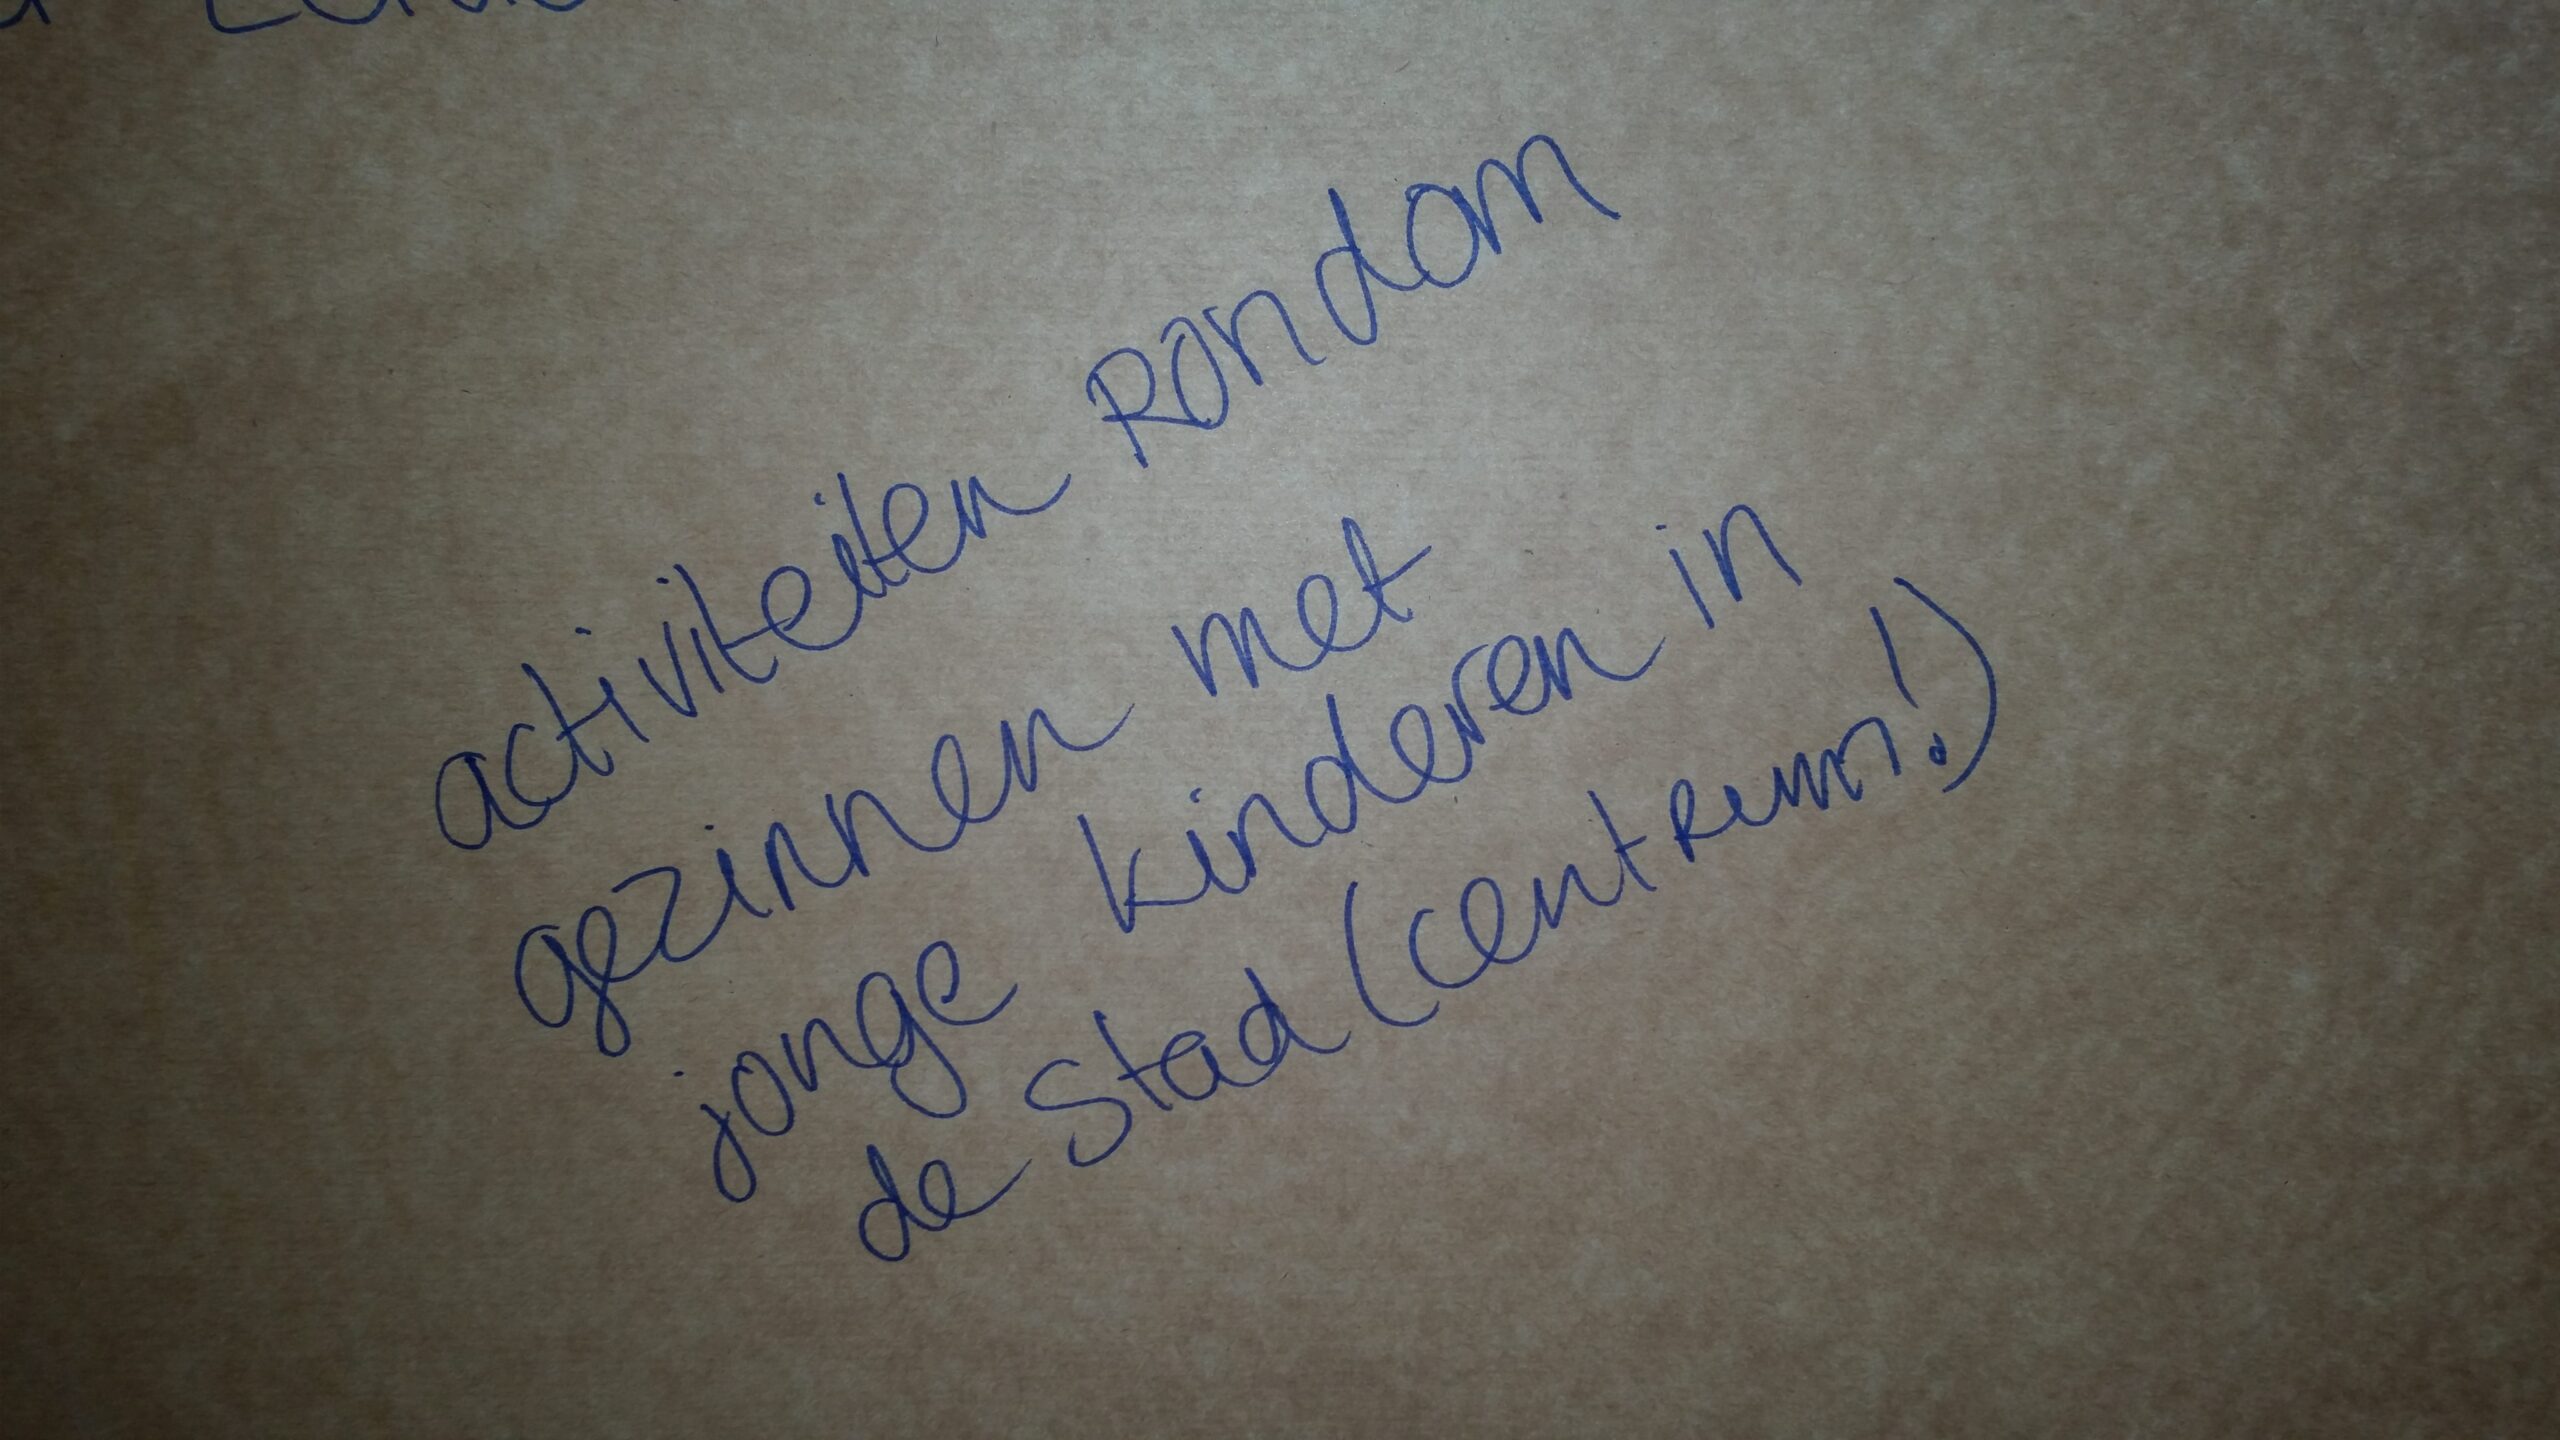 activiteiten Rondom
gezinnen met
jonge kinderen in
de Stad (centrum!)